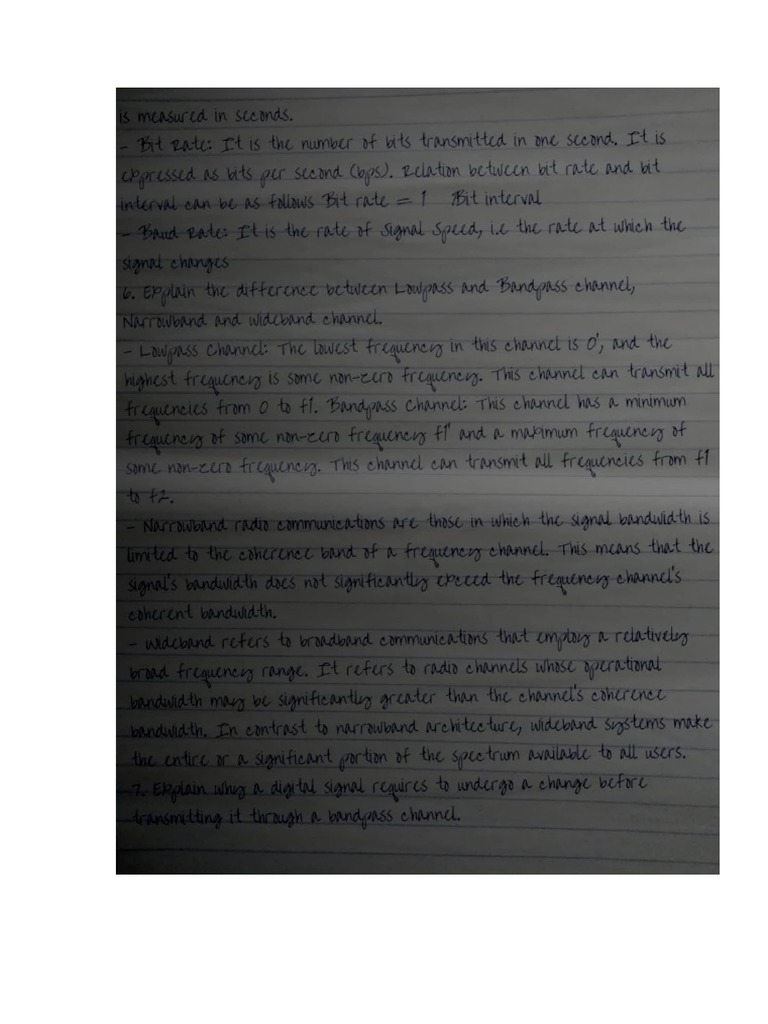 is measured in seconds.
- Bit Rate: It is the number of bits transmitted in one second. It is
expressed as bits per second (bps). Relation between bit rate and bit
interval can be as follows Bit rate = 1 /Bit interval
- Baud Rate: It is the rate of Signal Speed, i.e the rate at which the
signal changes
6. Explain the difference between Lowpass and Bandpass channel,
Narrowband and wideband channel.
- Lowpass Channel: The lowest frequency in this channel is 0', and the
highest frequency is some non-zero frequency. This channel can transmit all
frequencies from 0 to f1. Bandpass Channel: This channel has a minimum
frequency of some non-zero frequency f1' and a maximum frequency of
some non-zero frequency. This channel can transmit all frequencies from f1
to f2.
- Narrowband radio communications are those in which the signal bandwidth is
limited to the coherence band of a frequency channel. This means that the
signal's bandwidth does not significantly exceed the frequency channel's
coherent bandwidth.
- wideband refers to broadband communications that employ a relatively
broad frequency range. It refers to radio channels whose operational
bandwidth may be significantly greater than the channel's coherence
bandwidth. In contrast to narrowband architecture, wideband systems make
the entire or a significant portion of the spectrum available to all users.
7. Explain why a digital signal requires to undergo a change before
transmitting it through a bandpass channel.